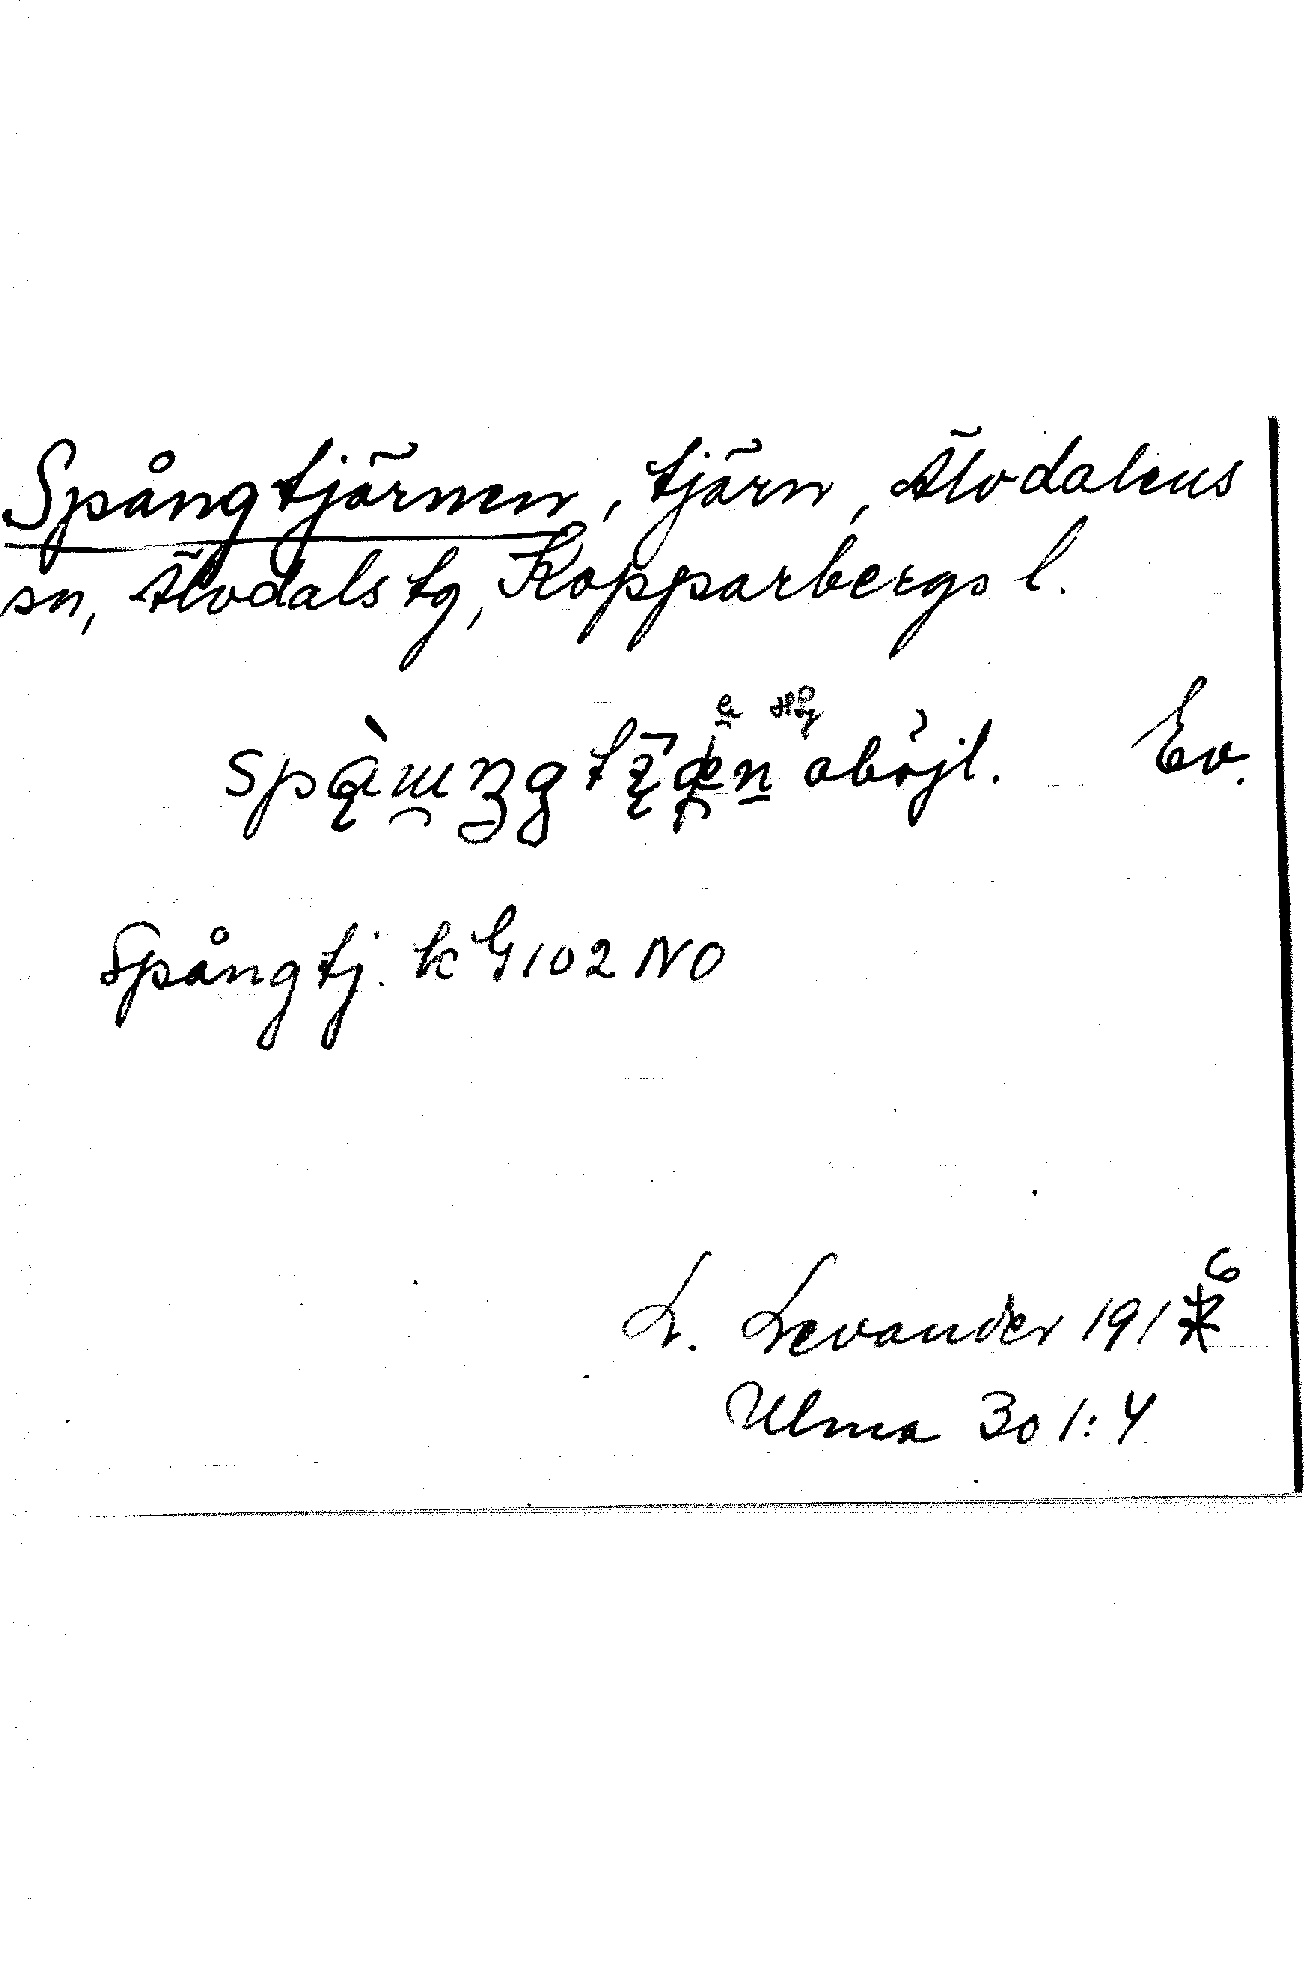 Spångtjärnen, tjärn, Älvdalens
sn, Älvdals tg, Kopparbergs l.
oböjl. Ev.
Spångtj. k G 102 NO
L. Levander 1916
Ulma 301:4